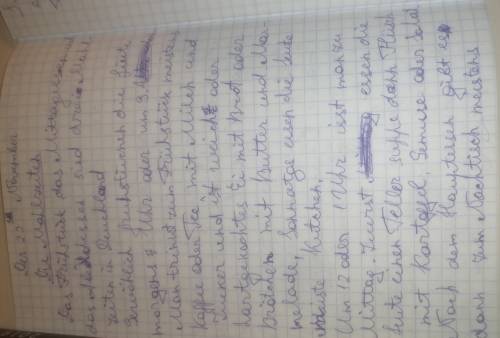 Der 22 November
Die Mahlzeiten
Das Frühstück das Mittagessen und
das Abendessen sind drei
zeiten in Deuchland
Gewöhlich frühstücken die Leute
morgens 8 Uhr oder um 9
Man trinkt zum Frühstück meistens
Kaffee oder Tee mit Milch und
Zucker und ist weich oder
hartgekochtes Ei mit Brot oder
Brötchen mit Butter und Mar-
melade, Sonntags essen die Leute
Kuchen,
Um 12 oder 1 Uhr ist man zu
Mittag. Zuerst essen die
Leute einen Teller suppe dann Fleisch
mit Kartoffel, Gemüse oder Salad
Nach dem Hauptessen gibt es
dann zum Nachtisch meistens